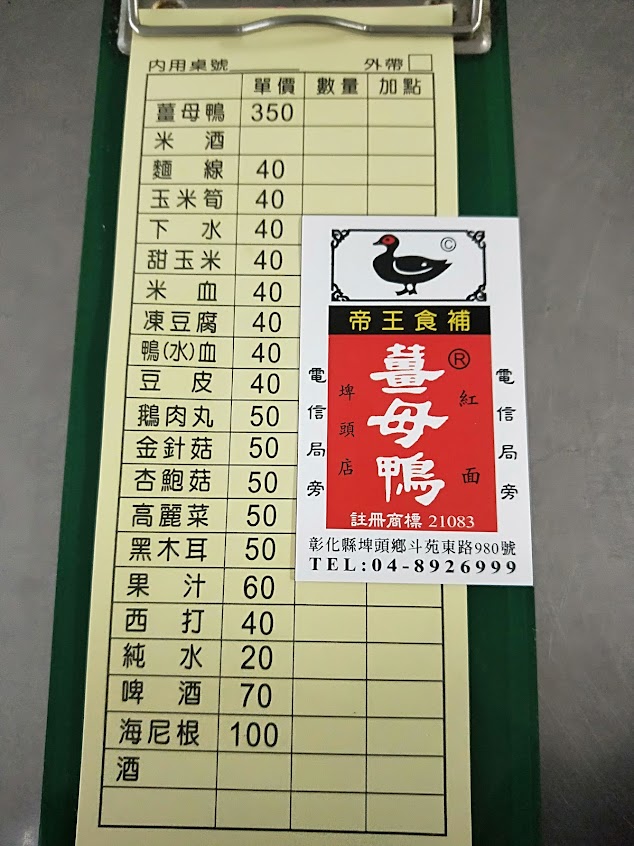 內用桌號 外帶
單價 數量 加點
薑母鴨 350
米酒
麵線 40
玉米筍 40
下水 40
甜玉米 40
米血 40
凍豆腐 40
鴨(水)血 40
豆皮 40
鵝肉丸 50
金針菇 50
杏鮑菇 50
高麗菜 50
黑木耳 50
果汁 60
西打 40
純水 20
啤酒 70
海尼根 100
酒
©
帝王食補
®
紅面
薑母鴨
埤頭店
電信局旁
電信局旁
註冊商標 21083
彰化縣埤頭鄉斗苑東路980號
TEL:04-8926999